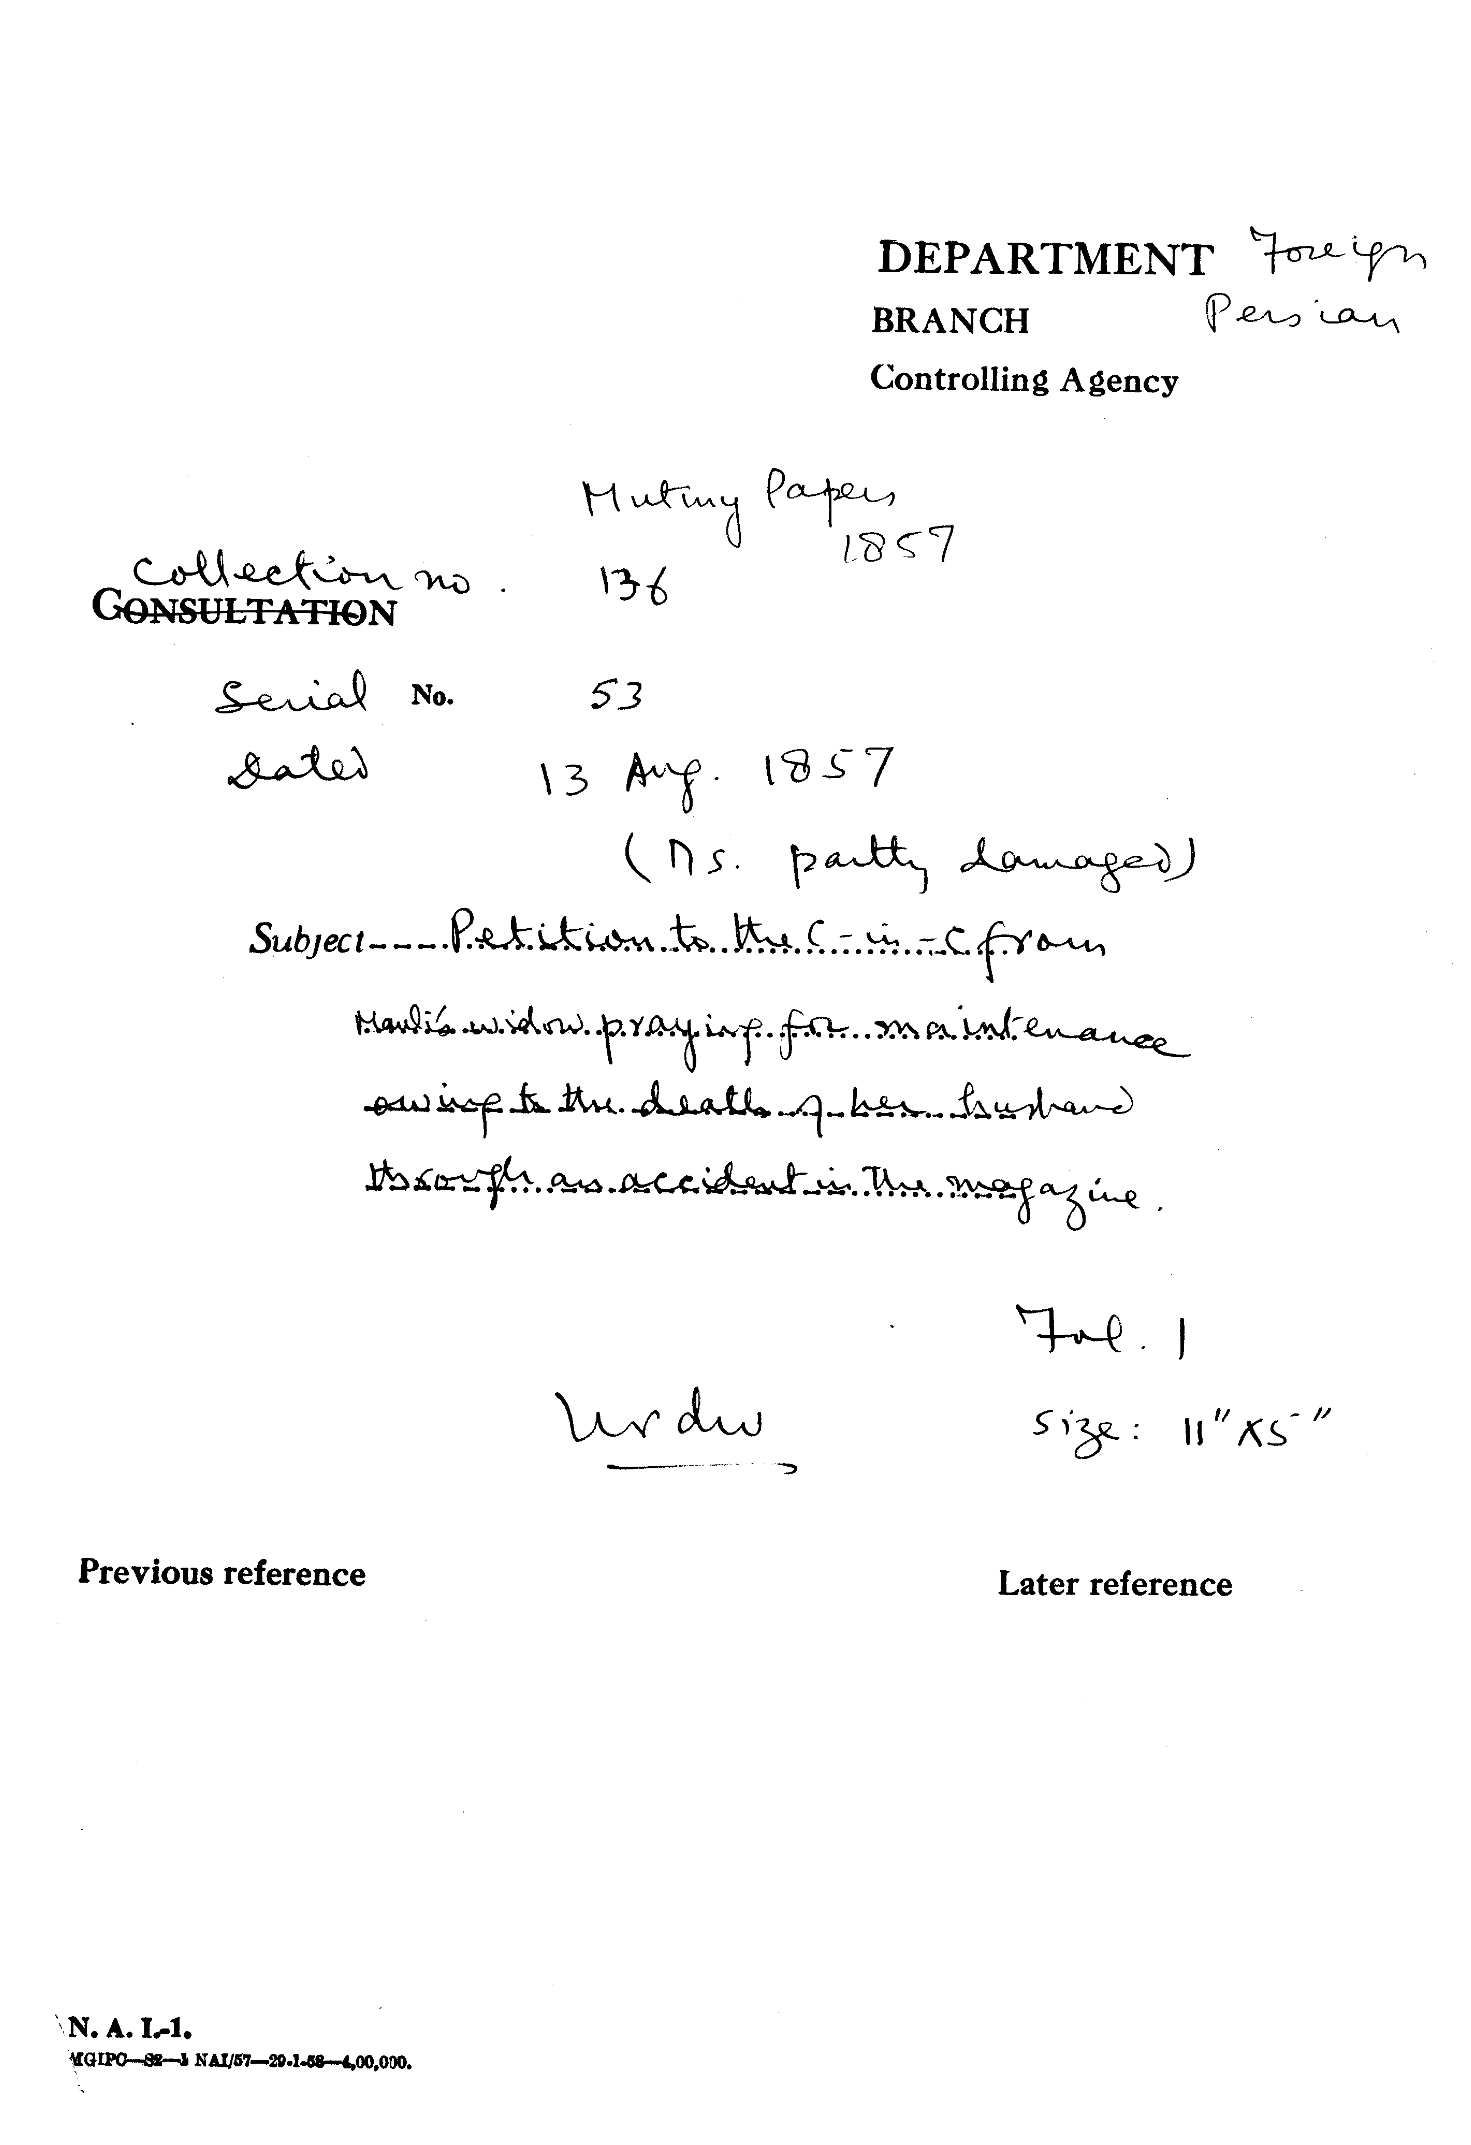 DEPARTMENT Foreign
BRANCH Persian
Controlling Agency
Mutiny Papers
1857
Collection no. 136
CONSULTATION
Serial No. 53
Dated 13 Aug. 1857
(Ms. partly damaged)
Subject----Petition to the C-in-C from
Maula's widow praying for maintenance
owing to the death of her husband
through an accident in the magazine.
Fol. 1
Urdu
Size: 11" x 5"
Previous reference
Later reference
N. A. I.-1.
MGIPC—S2—1 NAI/57—29-1-58—4,00,000.